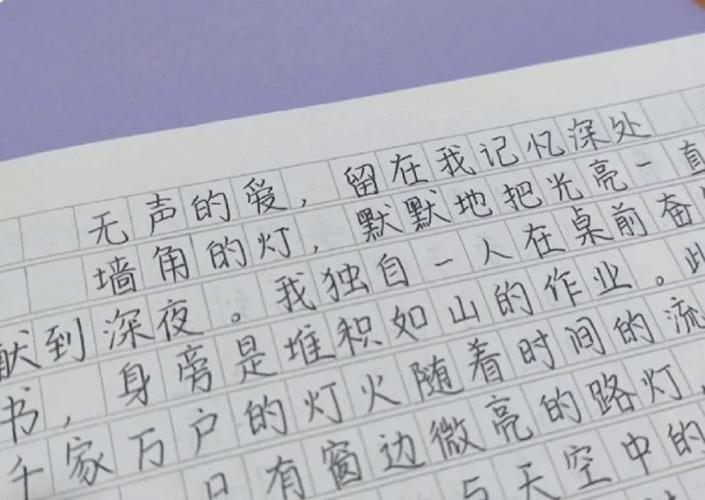 无声的爱，留在我记忆深处
墙角的灯，默默地把光亮一直
献到深夜。我独自一人在桌前奋
书，身旁是堆积如山的作业。此
千家万户的灯火随着时间的流
只有窗边微亮的路灯，
与天空中的